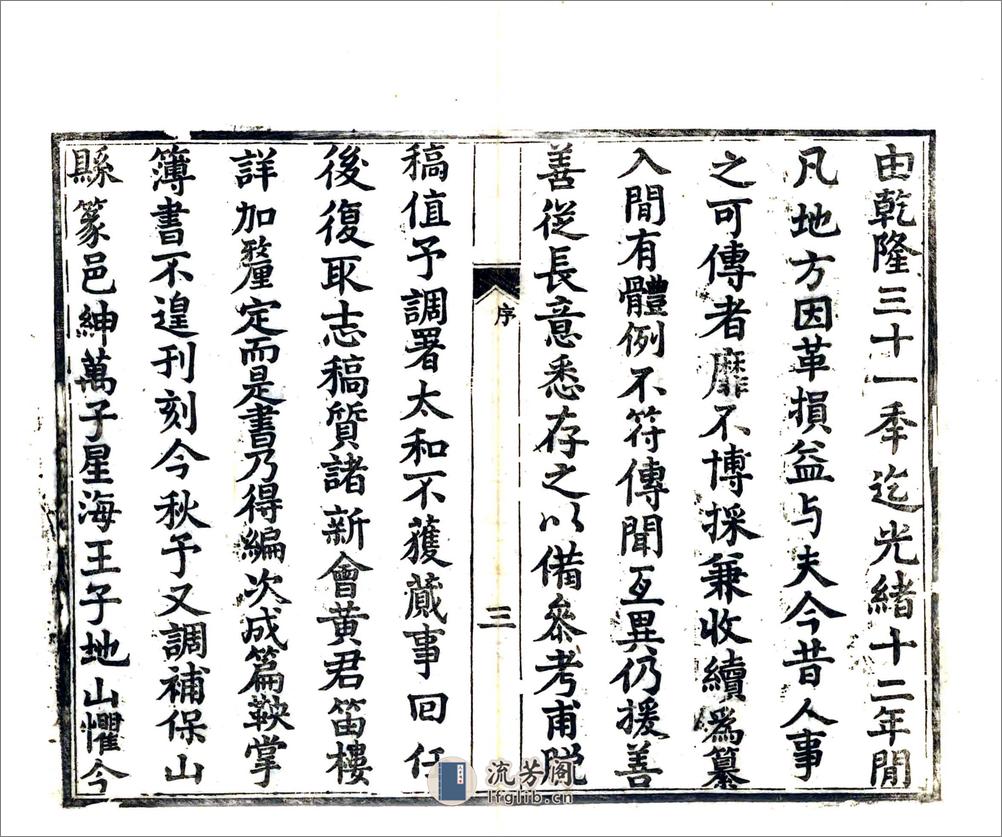 由乾隆三十一季迄光緒十二年閒
凡地方因革損益与夫今昔人事
之可傳者靡不博採兼收續為纂
入閒有體例不符傳聞互異仍援善
善從長意悉存之以備叅考甫脫
序
三
稿值予調署太和不獲蕆事回任
後復取志稿質諸新會黃君笛樓
詳加釐定而是書乃得編次成篇鞅掌
簿書不遑刊刻今秋予又調補保山
縣篆邑紳萬子星海王子地山懼今
流芳阁
lfglib.cn